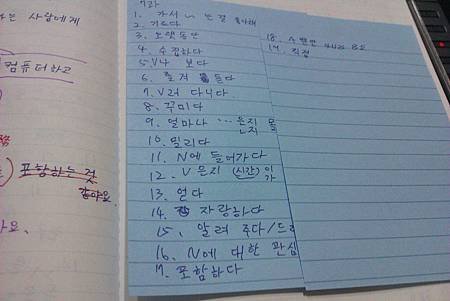 는 사람에게
컴퓨터하고
포함하는 것
같아요.
1. 가서 is 는걸 좋아해
2. 기르다
3. 오랫동안
4. 수집하다
5. V나 보다
6. 즐겨 듣다
7. V러 다니다
8. 꾸미다
9. 얼마나 … 은지 모
는지
10. 밀리다
11. N에 들어가다
12. V 은지 (시간) 이
가
13. 얻다
14. 자랑하다
15. 알려 주다/드리
16. N에 대한 관심
17. 포함하다
18.
19. 직접